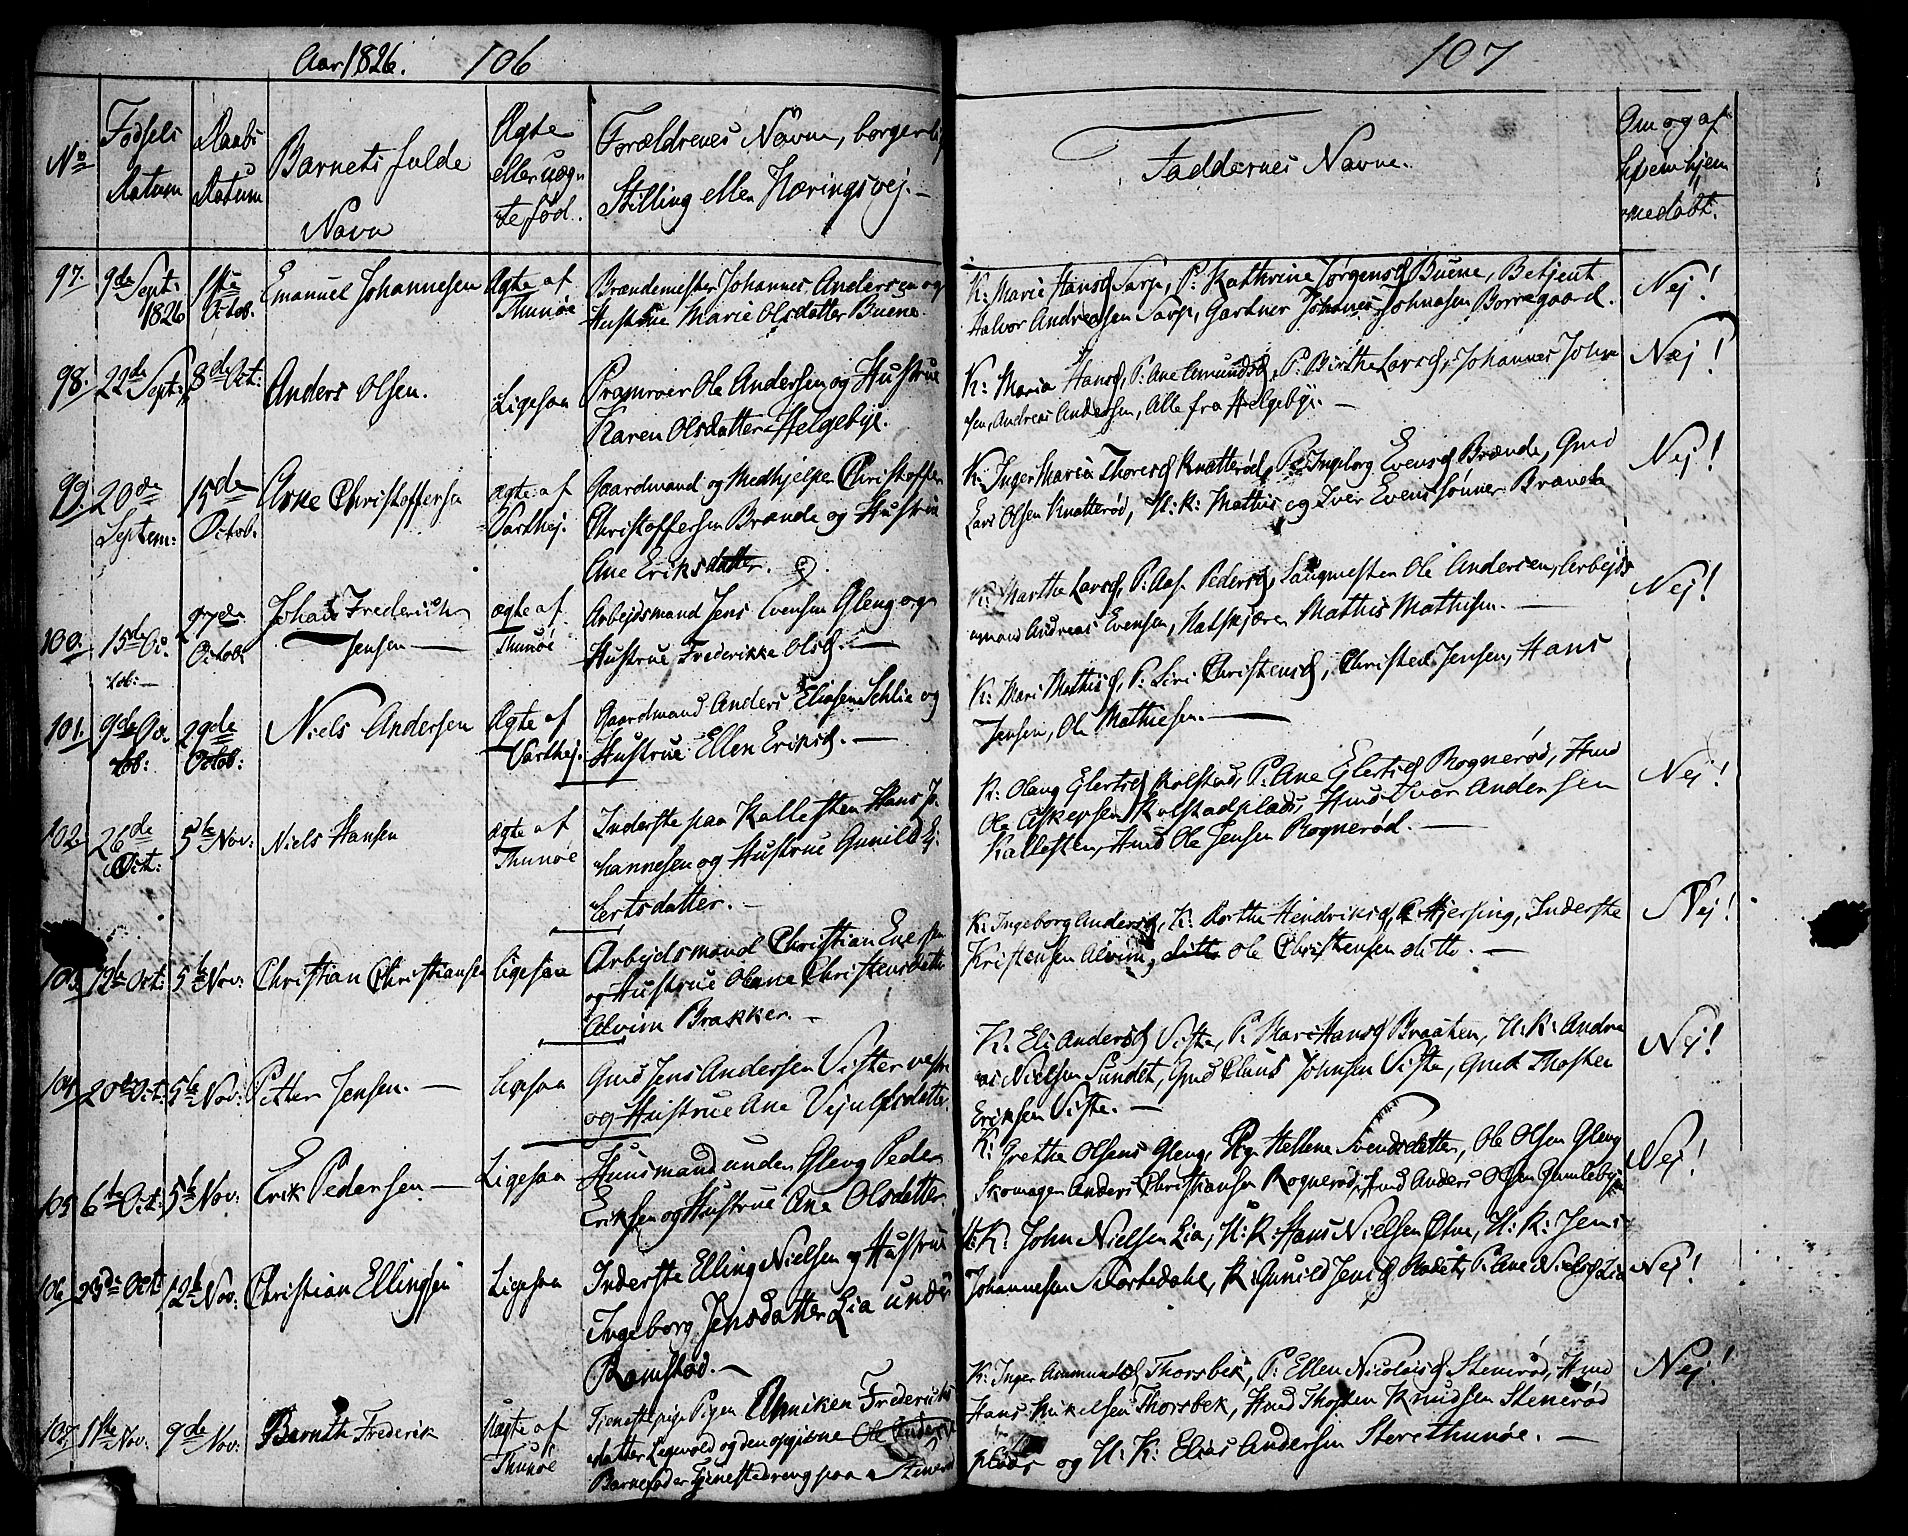 Aar 1826. 106
No
Fødsels
Datum
Daabs
Datum
Barnets fulde
Navn
Ægte
eller uæg-
te fød.
Forældrenes Navne, borgerlig
Stilling eller Næringsvej.
97. 9de Sept: 1826
1ste Octob:
Emanuel Johannesen
Ægte af
Thunøe
Brændemester Johannes Andersen og
Hustrue Marie Olsdatter Buene.
98. 22de Sept:
8de Oct:
Anders Olsen.
Ligesaa
Pramroer Ole Andersen og Hustrue
Karen Olsdatter Helgebÿe.
99. 20de
Septem:
15de
Octob.
Arne Christoffersen
Ægte af
Vartej.
Gaardmand og Medhjelper Christoffer
Christoffersen Brænde og Hustrue
Ane Eriksdatter.
100. 15de Oc-
tob:
27de
Octob:
Johan Frederich
Jensen
ægte af
Thunøe
Arbejdsmand Jens Evensen Gleng og
Hustrue Frederikke Olsd.
101. 9de Oc-
tob:
29de
Octob:
Niels Andersen
Ægte af
Vartej.
Gaardmand Anders Eliasen Schlie og
Hustrue Ellen Eriksd.
102. 26de
Oct:
5te Nov:
Niels Hansen
ægte af
Thunøe
Inderste paa Kallesten Hans Jo-
hannesen og Hustrue Gunild Ej-
lertsdatter.
103. 12te Oct: 5te Nov:
Christian Christiansen
Ligesaa
Arbejdsmand Christian Evensen
og Hustrue Olane Christensdatter
Alvim Brakker.
104. 20de Oct: 5te Nov:
Petter Jensen.
Ligesaa
Gmd Jens Andersen Vister vestre
og Hustrue Ane Vejulfsdatter
105. 6te Oct: 5te Nov:
Erik Pedersen
Ligesaa
Huusmand under Gleng Peder
Eriksen og Hustrue Ane Olsdatter.
106. 23de Oct 12te Nov:
Christian Ellingsen
Ligesaa
Inderste Elling Nielsen og Hustrue
Ingeborg Jensdatter Lia under
Romstad.
107. 1ste Nov: 9de Nov:
Bernth Frederik
Uægte af
Thunøe
Tjenestepige Pigen Anniken Frederiks-
datter og den opgivne Ole Anders
Barnefader Tjenestedreng paa Stenerød
107
Faddernes Navne.
Om og af
hvem hjem-
medøbt.
K: Marie Hansd Sarp, P: Kathrine Jørgensd Buene, Betjent
Halvor Andreasen Sarp, Gartner Johanes Johnasen Borregaard.
Nej!
K: Maria Hansd, P: Ane Amundsd, P: Birthe Larsd, Johannes John-
sen, Andreas Andersen, Alle fra Helgebÿe.
Nej!
K: Inger Maria Thoresd Knatterød, P: Ingeborg Evensd Brænde, Gmd
Lars Olsen Knatterød, U: K: Mathis og Iver Evens Sønner Brænde
Nej!
K: Marthe Larsd, P: Aase Pedersd, Saugmester Ole Andersen, Arbejds-
mand Andreas Evensen, Mathis Mathisen.
Nej!
K: Mari Mathisd, P: Siri Christensd, Christen Jensen, Hans
Jensen, Ole Mathiesen.
K: Olaug Ejlertsd Kolstad, P: Ane Ejlertsd Rognerød, Hmd
Ole Askersen Kolstadplads, Hmd Iver Andersen
Kallesten, Hmd Ole Jensen Rognerød.
Nej!
K: Ingeborg Andersd, K: Dorthe Hendriksd Hjersing, Inderste
Kristensen Alvim, ditto Ole Christensen ditto.
Nej!
K: Eli Andersd Viste, P: Mari Hansd Braaten, U: K: Andre-
as Nielsen Sundet, Gmd Claus Johnsen Viste, Gmd Thosten
Eriksen Viste.
Nej!
K: Grethe Olsens Gleng, P: Hellene Svendsdatter, Ole Olsen Gleng
Skomager Anders Christiansen Rognerød, Hmd Anders Olsen Gamlebyen
Nej!
U: K: John Nielsen Lia, U: K: Hans Nielsen, U: K: Jens
Johannesen Skortedahl, K: Gunild Jensd Rødet, P: Ane Nielsd Lia
Nej!
K: Inger Ammundsd Thorsbek, P: Ellen Nicolaisd Stenerød, Hmd
Hans Mikelsen Thorsbek, Hmd Thosten Knudsen Stenerød
plads og U: K: Elias Andersen Store Thunøe.
Nej!